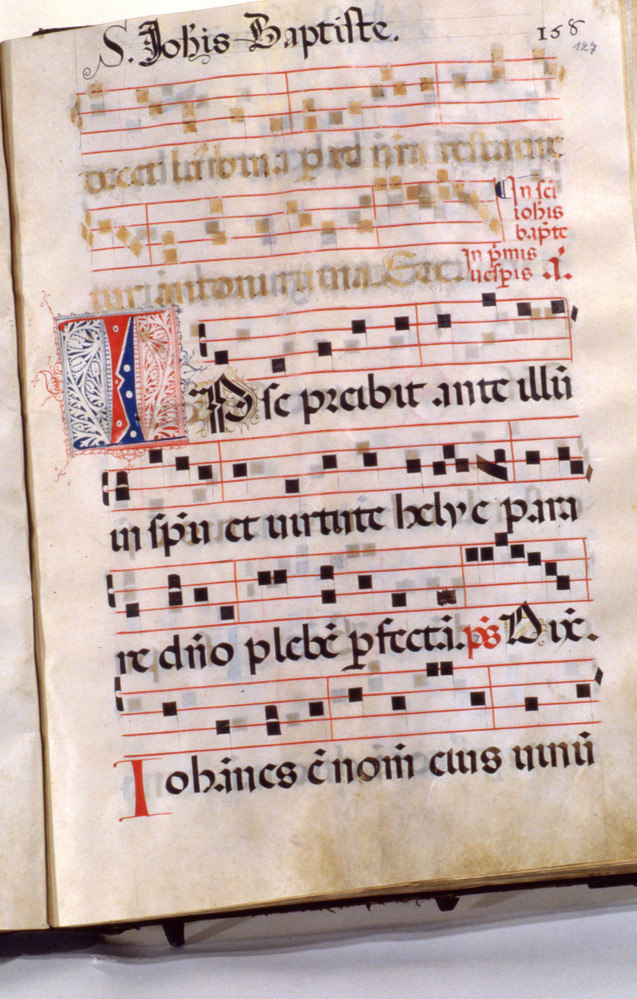 S. Johis Baptiste.
158
127
In sci
iohis
bapte
in pmis
uespis a.
Ipse preibit ante illū
in spū et uirtute helye para
re dño plebē pfectā. ps Dixe.
Iohānes ē nom̄ eius uinū